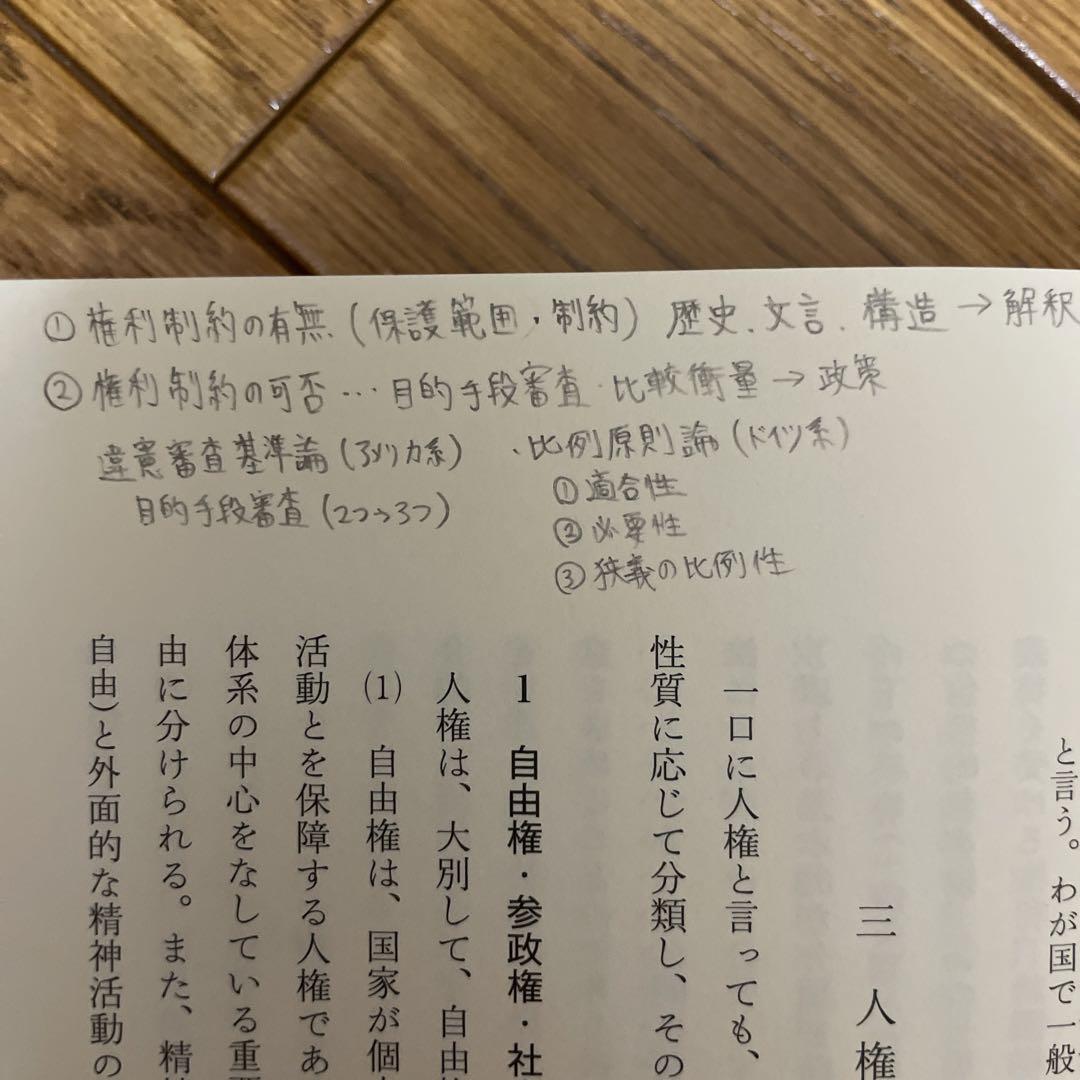 ① 権利制約の有無（保護範囲・制約） 歴史、文言、構造→解釈
② 権利制約の可否…目的手段審査・比較衡量→政策
違憲審査基準論（アメリカ系）
・比例原則論（ドイツ系）
目的手段審査（2つ→3つ）
① 適合性
② 必要性
③ 狭義の比例性
と言う。わが国で一般
三 人権
一口に人権と言っても、
性質に応じて分類し、その
1 自由権・参政権・社
人権は、大別して、自由
(1) 自由権は、国家が個
活動とを保障する人権であ
体系の中心をなしている重
由に分けられる。また、精
自由)と外面的な精神活動の